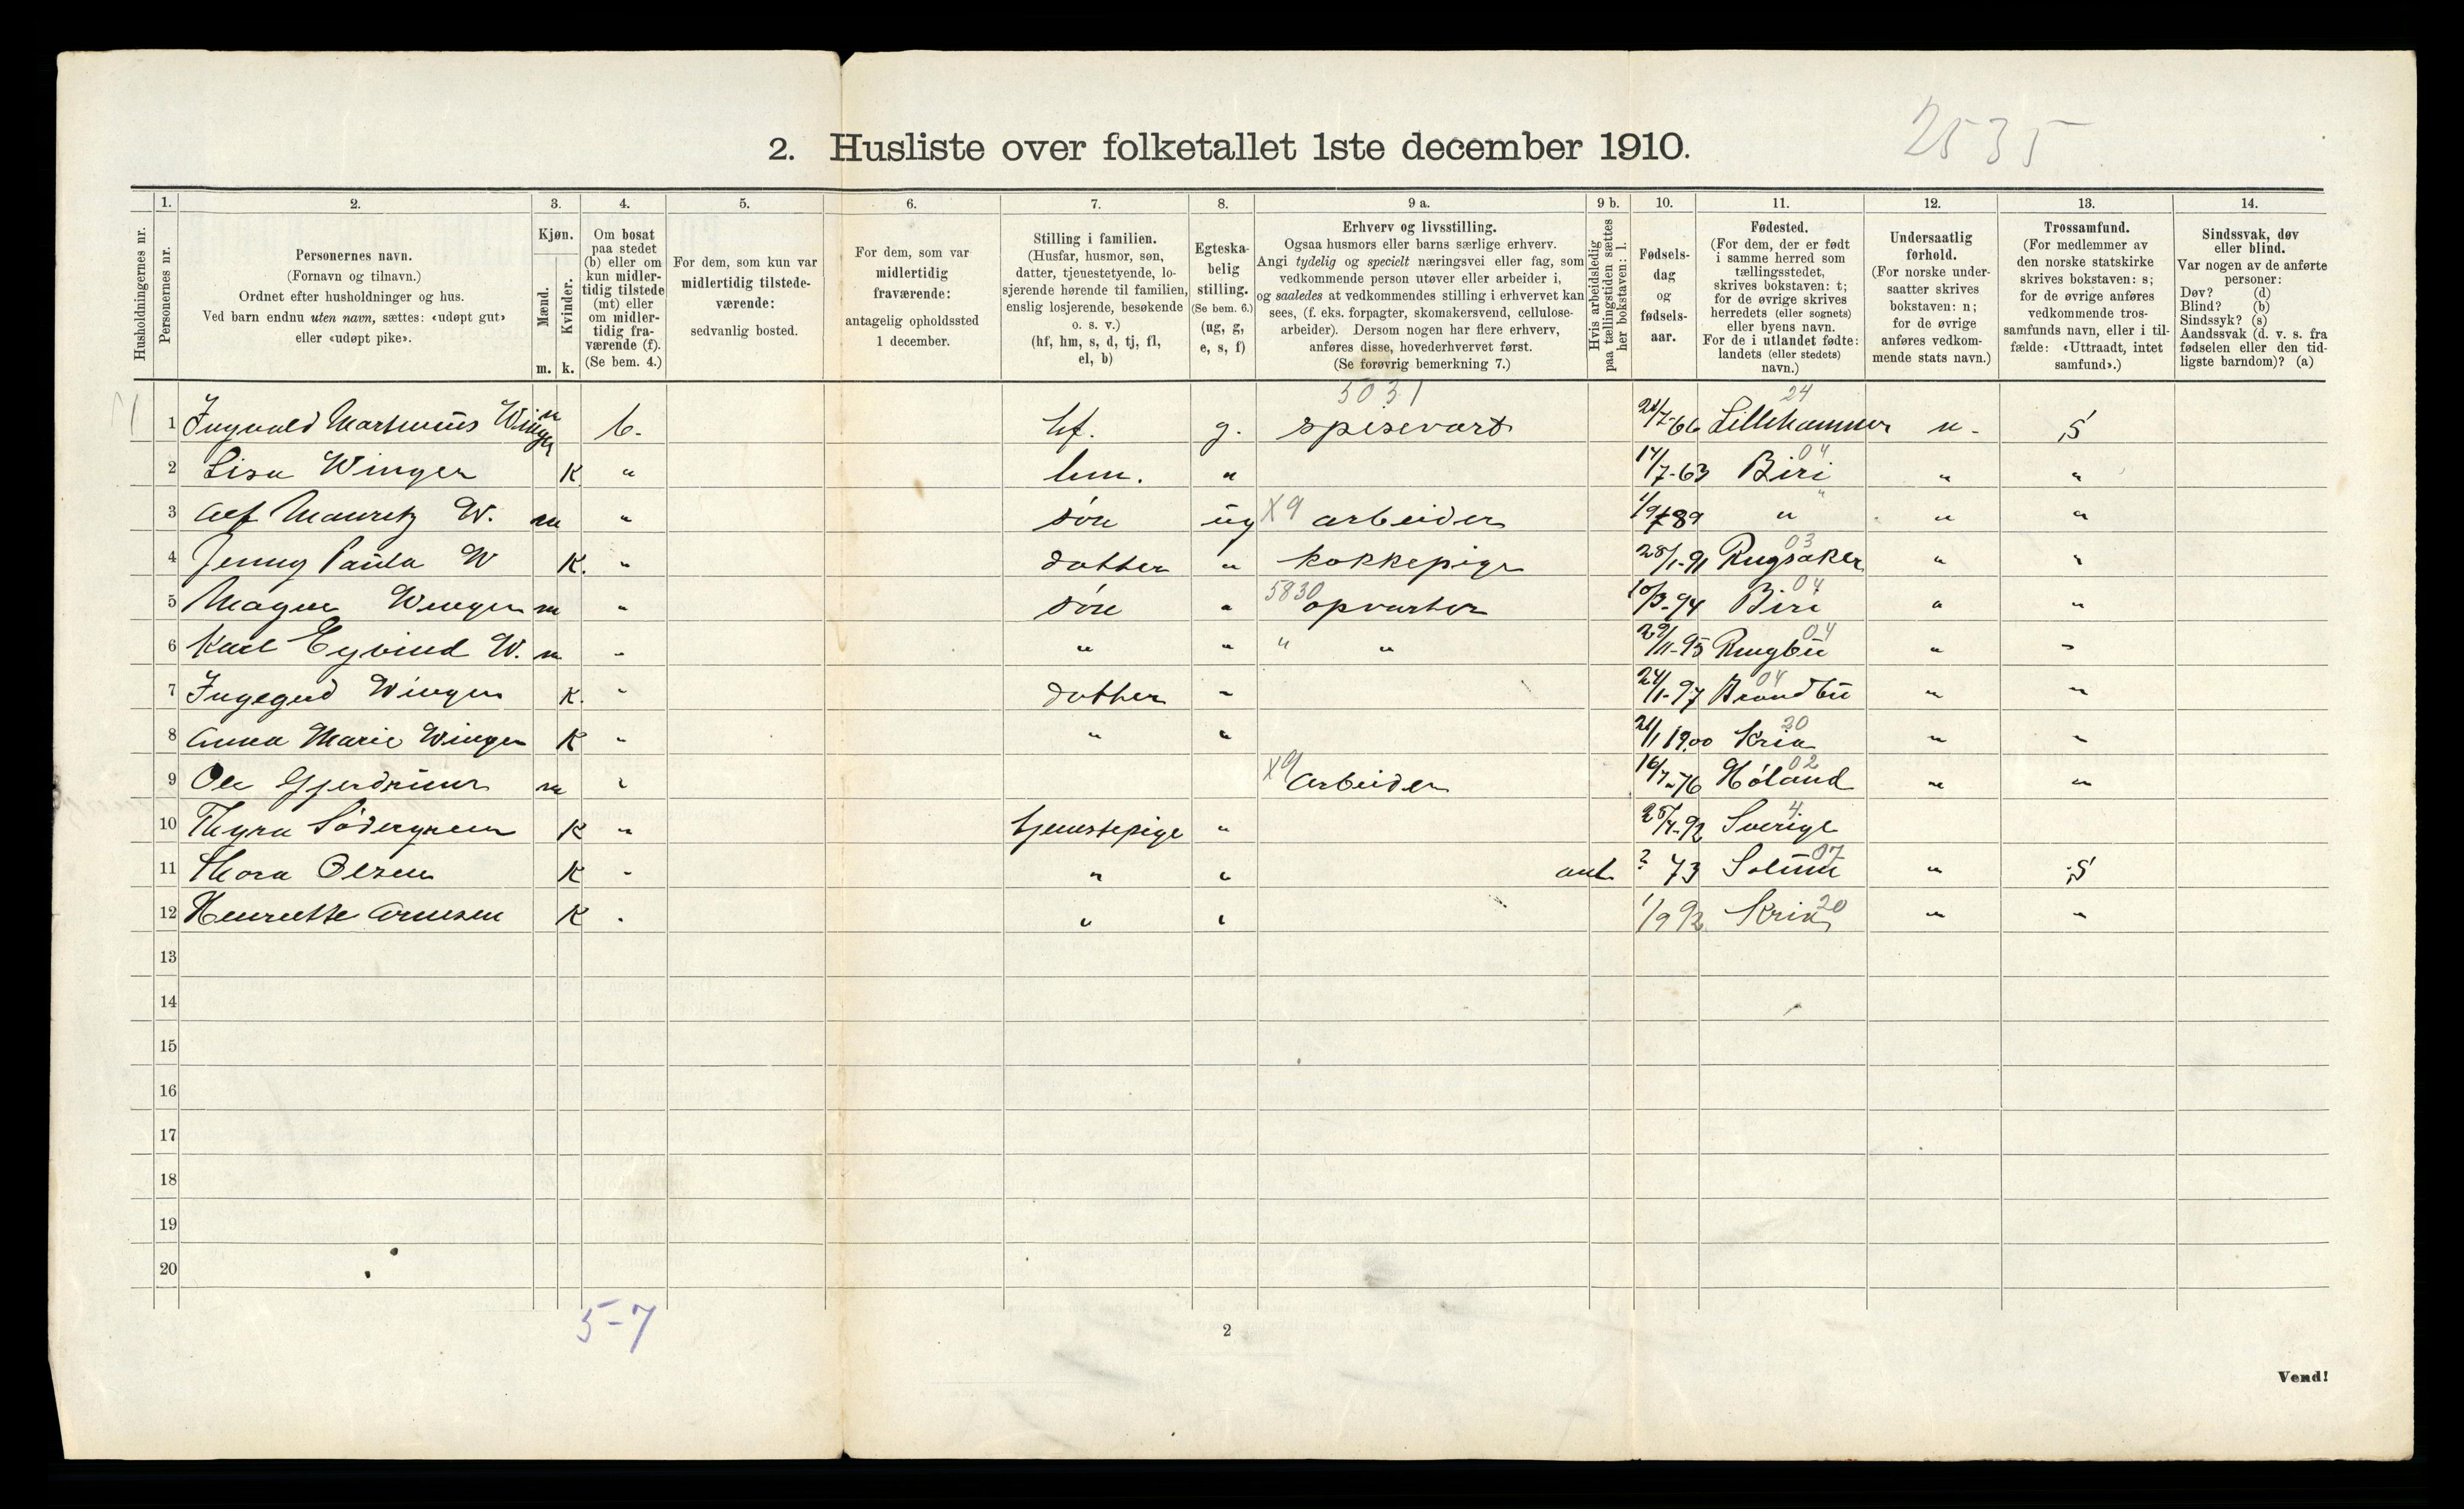 2. Husliste over folketallet 1ste december 1910.
2535
Husholdningernes nr.
1. Personernes nr.
2. Personernes navn.
(Fornavn og tilnavn.)
Ordnet efter husholdninger og hus.
Ved barn endnu uten navn, sættes: «udøpt gut»
eller «udøpt pike».
3. Kjøn.
Mænd. m.
Kvinder. k.
4. Om bosat
paa stedet
(b) eller om
kun midler-
tidig tilstede
(mt) eller
om midler-
tidig fra-
værende (f).
(Se bem. 4.)
5. For dem, som kun var
midlertidig tilstede-
værende:
sedvanlig bosted.
6. For dem, som var
midlertidig
fraværende:
antagelig opholdssted
1 december.
7. Stilling i familien.
(Husfar, husmor, søn,
datter, tjenestetyende, lo-
sjerende hørende til familien,
enslig losjerende, besøkende
o. s. v.)
(hf, hm, s, d, tj, fl,
el, b)
8. Egteska-
belig
stilling.
(Se bem. 6.)
(ug, g,
e, s, f)
9 a. Erhverv og livsstilling.
Ogsaa husmors eller barns særlige erhverv.
Angi tydelig og specielt næringsvei eller fag, som
vedkommende person utøver eller arbeider i,
og saaledes at vedkommendes stilling i erhvervet kan
sees, (f. eks. forpagter, skomakersvend, cellulose-
arbeider). Dersom nogen har flere erhverv,
anføres disse, hovederhvervet først.
(Se forøvrig bemerkning 7.)
9 b. Hvis arbeidsledig
paa tællingstiden sættes
her bokstaven: l.
10. Fødsels-
dag
og
fødsels-
aar.
11. Fødested.
(For dem, der er født
i samme herred som
tællingsstedet,
skrives bokstaven: t;
for de øvrige skrives
herredets (eller sognets)
eller byens navn.
For de i utlandet fødte:
landets (eller stedets)
navn.)
12. Undersaatlig
forhold.
(For norske under-
saatter skrives
bokstaven: n;
for de øvrige
anføres vedkom-
mende stats navn.)
13. Trossamfund.
(For medlemmer av
den norske statskirke
skrives bokstaven: s;
for de øvrige anføres
vedkommende tros-
samfunds navn, eller i til-
fælde: «Uttraadt, intet
samfund».)
14. Sindssvak, døv
eller blind.
Var nogen av de anførte
personer:
Døv? (d)
Blind? (b)
Sindssyk? (s)
Aandssvak (d. v. s. fra
fødselen eller den tid-
ligste barndom)? (a)
5031 24
1 Ingvald Martinius Winger m b. hf. g. spisevært 21/7-66 Lillehammer n. S
2 Lisa Winger K " hm. " 17/7-63 Biri 04 " "
3 Alf Mauritz W. m " søn ug X9 arbeider 1/9 89 " " "
4 Jenny Paula W K. " datter " kokkepige 28/1-91 Ringsaker 03 " "
5 Magne Winger m " søn " 5830 opvarter 10/3-94 Biri 04 " "
6 Karl Eyvind W. m " " " " " 29/11-95 Ringbu 04 " "
7 Ingegerd Winger K. " datter " 24/1-97 Brandbu 04 " "
8 Anna Marie Winger K " " " 21/1 1900 Kria 20 " "
9 Ole Gjerdrum m " X9 Arbeider 16/7-76 Høland 02 " "
10 Thyra Södergren K " tjenestepige " 25/4-92 Sverige 4
11 Thora Olsen K " " " ant. ? 73 Solum 07 " S
12 Henriette Arnesen K " " " 1/9 92 Kria 20 " "
13
14
15
16
17
18
19
20
5-7
2
Vend!